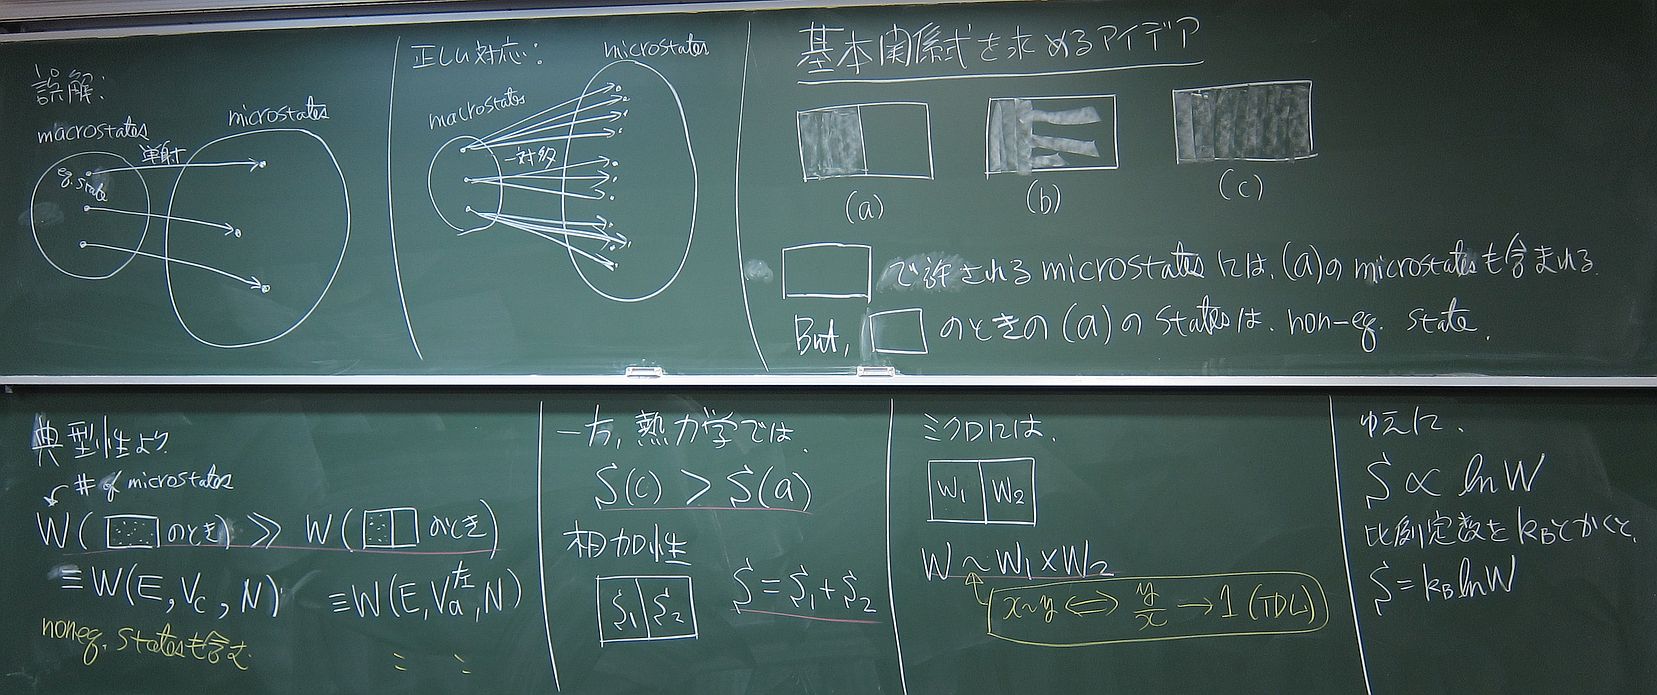 誤解:
macrostates
microstates
単射
eq. state
正しい対応:
microstates
macrostates
一対多
基本関係式を求めるアイデア
(a)
(b)
(c)
で許される microstates には、(a)の microstates も含まれる.
But, のときの (a) の states は、non-eq. state.
典型性より
# of microstates
W( のとき) ≫ W( のとき)
≡W(E, Vc, N) ≡W(E, Va左, N)
noneq. states も含む.
一方, 熱力学では、
S(c) > S(a)
相加性
S1 S2
S = S1 + S2
ミクロには、
W1 W2
W ~ W1 × W2
x~y ⇔ y/x → 1 (TDL)
ゆえに、
S ∝ ln W
比例定数を kBとかくと、
S = kB ln W